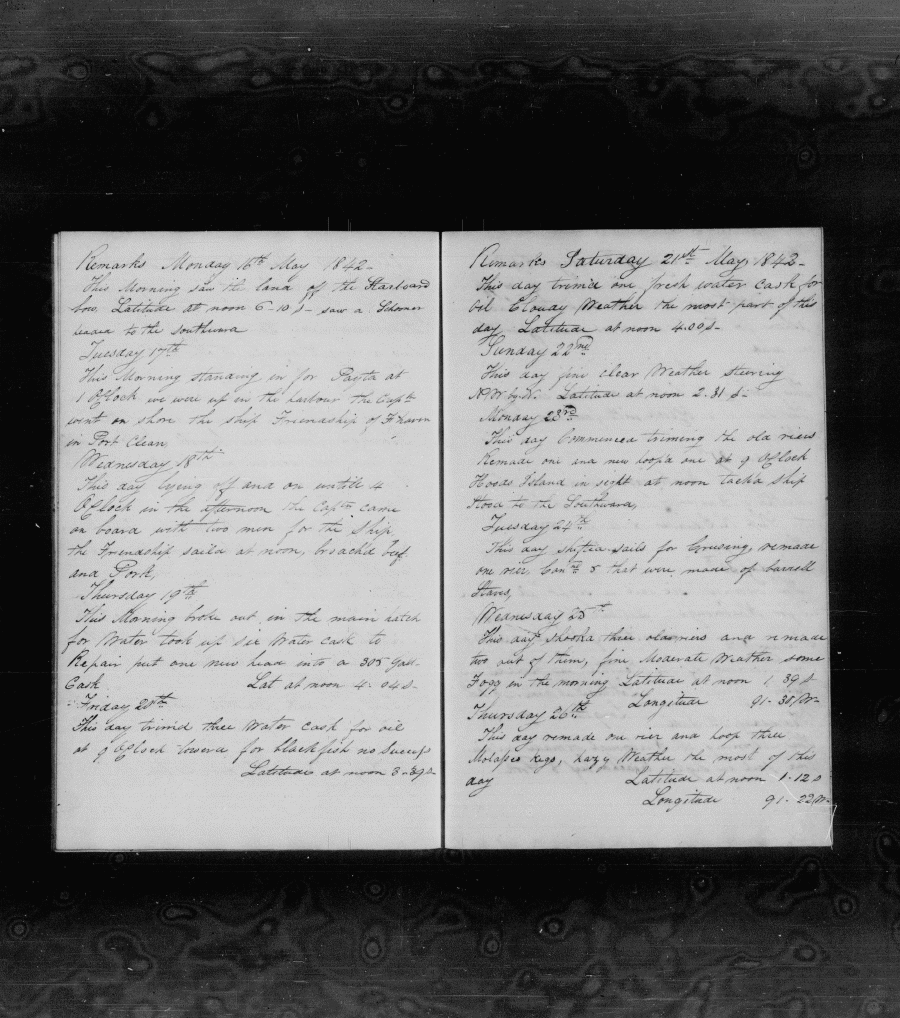 Remarks Monday 16th May 1842-
This Morning saw the land off the Starboard
bow, Latitude at noon 6-10 S- saw a Schooner
head to the Southward
Tuesday 17th
This Morning standing in for Payta at
1 OClock we were up in the harbour the Captn
went on shore the ship Friendship of F Haven
in Port Clean
Wednesday 18th
This day lyeing off and on untill 4
OClock in the afternoon the Captn came
on board with two men for the Ship,
the Friendship saild at noon, broach'd beef
and Pork,
Thursday 19th
This Morning broke out in the main hatch
for Water took up six Water cask to
Repair put one new head into a 305 gall-
Cask Lat at noon 4-04 S-
Friday 20th
This day trim'd three Water cask for oil
at 9 OClock lowerd for blackfish no success
Latitude at noon 3-39 S
Remarks Saturday 21st May 1842-
This day trim'd one fresh water cask for
oil Cloudy Weather the most part of this
day Latitude at noon 4.00 S-
Sunday 22nd
This day fine clear Weather steering
N.W. by W. Latitude at noon 2-31 S-
Monday 23rd
This day Commenced triming the old riers
Remade one and new hoop'd one at 9 OClock
Hoods Island in sight at noon tackd Ship
Stood to the Southward,
Tuesday 24th
This day shifted sails for Cruising, remade
one rier, & that were made of barrell
Staves,
Wednesday 25th
This day shookd three old riers and remade
two out of them, fine Moderate Weather some
Fogg in the morning Latitude at noon 1 39 S
Longitude 91-38 W-
Thursday 26th
This day remade one rier and hoop three
Molasses kegs, hazy Weather the most of this
day Latitude at noon 1-12 S
Longitude 91-22 W-